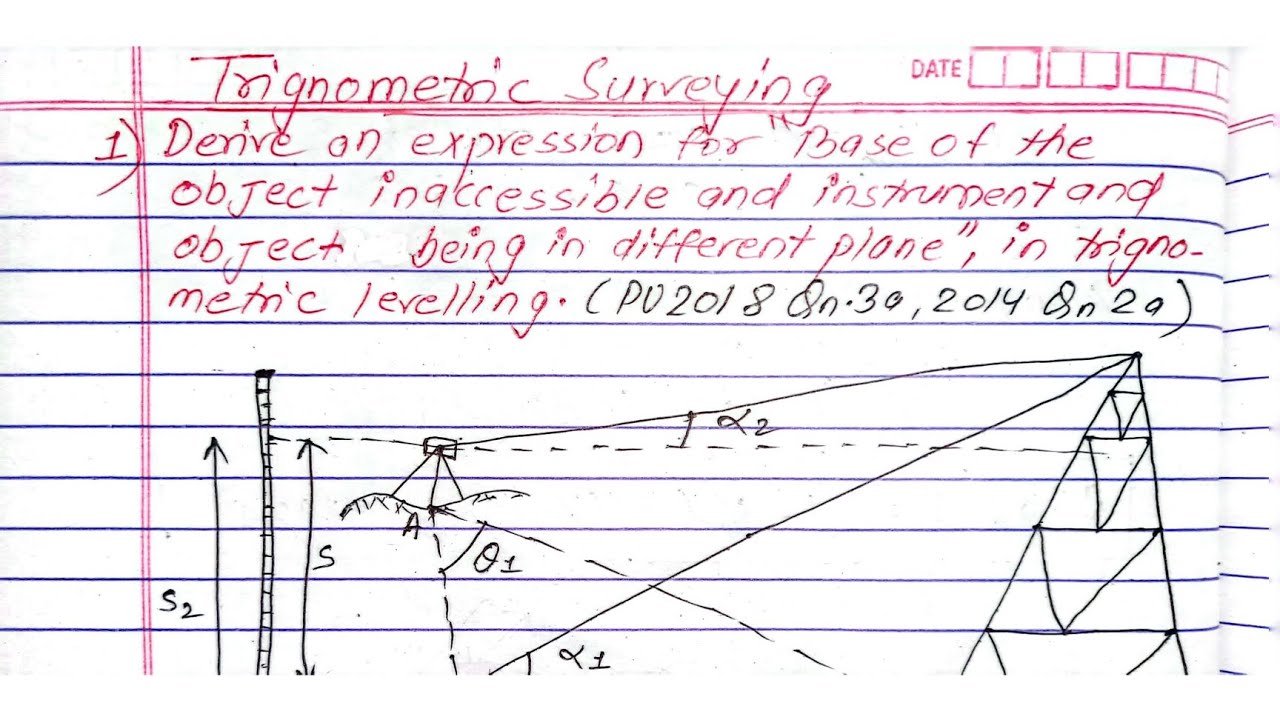 Trignometric Surveying
DATE
1) Derive an expression for "Base of the
object inaccessible and instrument and
object being in different plane", in trigno-
metric levelling. (PU2018 Qn.3a, 2014 Qn 2a)
α2
A
θ1
S
S2
α1